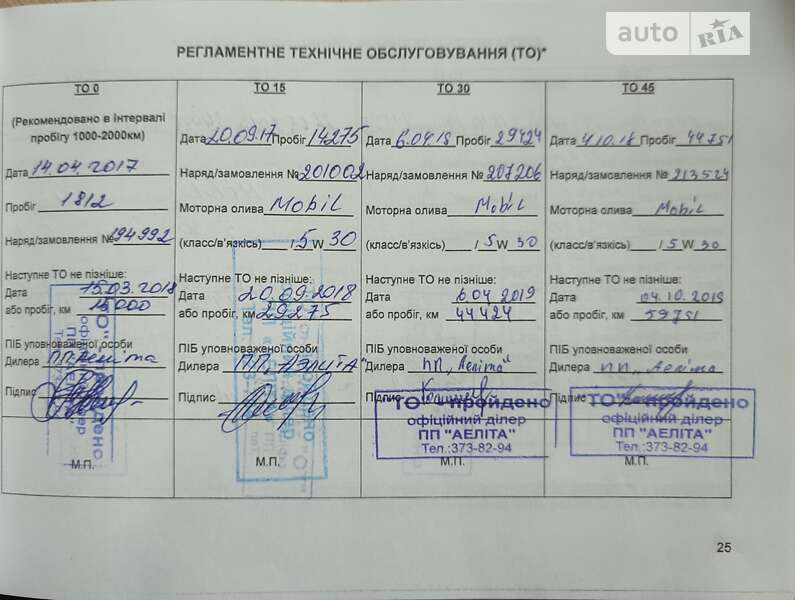 auto RIA
РЕГЛАМЕНТНЕ ТЕХНІЧНЕ ОБСЛУГОВУВАННЯ (ТО)*
ТО 0
(Рекомендовано в інтервалі
пробігу 1000-2000км)
Дата 14.04.2017
Пробіг 1812
Наряд/замовлення № 194992
Наступне ТО не пізніше:
Дата 15.03.2018
або пробіг, км 15000
ПІБ уповноваженої особи
Дилера ПП Аеліта
Підпис
М.П.
ТО 15
Дата 20.09.17 Пробіг 14275
Наряд/замовлення № 201002
Моторна олива Mobil
(класс/в'язкісь) / 5 W 30
Наступне ТО не пізніше:
Дата 20.09.2018
або пробіг, км 29275
ПІБ уповноваженої особи
Дилера ПП "АЭЛИТА"
Підпис
М.П.
ТО 30
Дата 6.04.18 Пробіг 29424
Наряд/замовлення № 207206
Моторна олива Mobil
(класс/в'язкісь) / 5 W 30
Наступне ТО не пізніше:
Дата 6.04 2019
або пробіг, км 44424
ПІБ уповноваженої особи
Дилера ПП "Аеліта"
Підпис
ТО" - пройдено
офіційний ділер
ПП "АЕЛІТА"
Тел.:373-82-94
М.П.
ТО 45
Дата 4.10.18 Пробіг 44751
Наряд/замовлення № 213524
Моторна олива Mobil
(класс/в'язкісь) / 5 W 30
Наступне ТО не пізніше:
Дата 04.10.2019
або пробіг, км 59751
ПІБ уповноваженої особи
Дилера ПП "Аеліта
Підпис
ТО" - пройдено
офіційний ділер
ПП "АЕЛІТА"
Тел.:373-82-94
М.П.
25